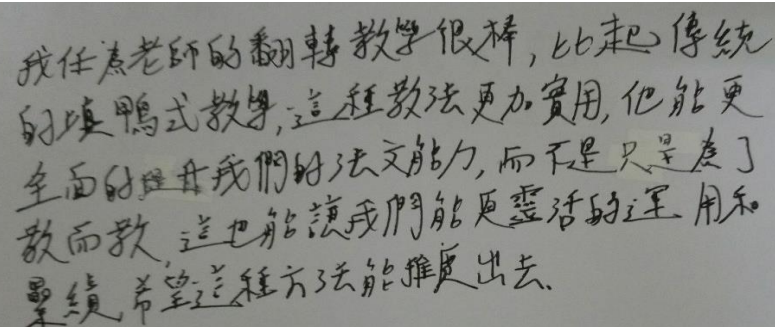 我任為老師的翻轉教學很棒,比起傳統
的填鴨式教學,這種教法更加實用,他能更
全面的提升我們的法文能力,而不是只是為了
教而教,這也能讓我們能更靈活的運用和
累績,希望這種方法能推廣出去.